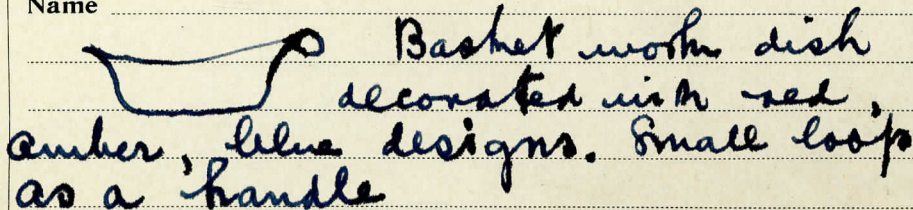 Name
Basket work dish
decorated with red,
amber, blue designs. Small loop
as a handle